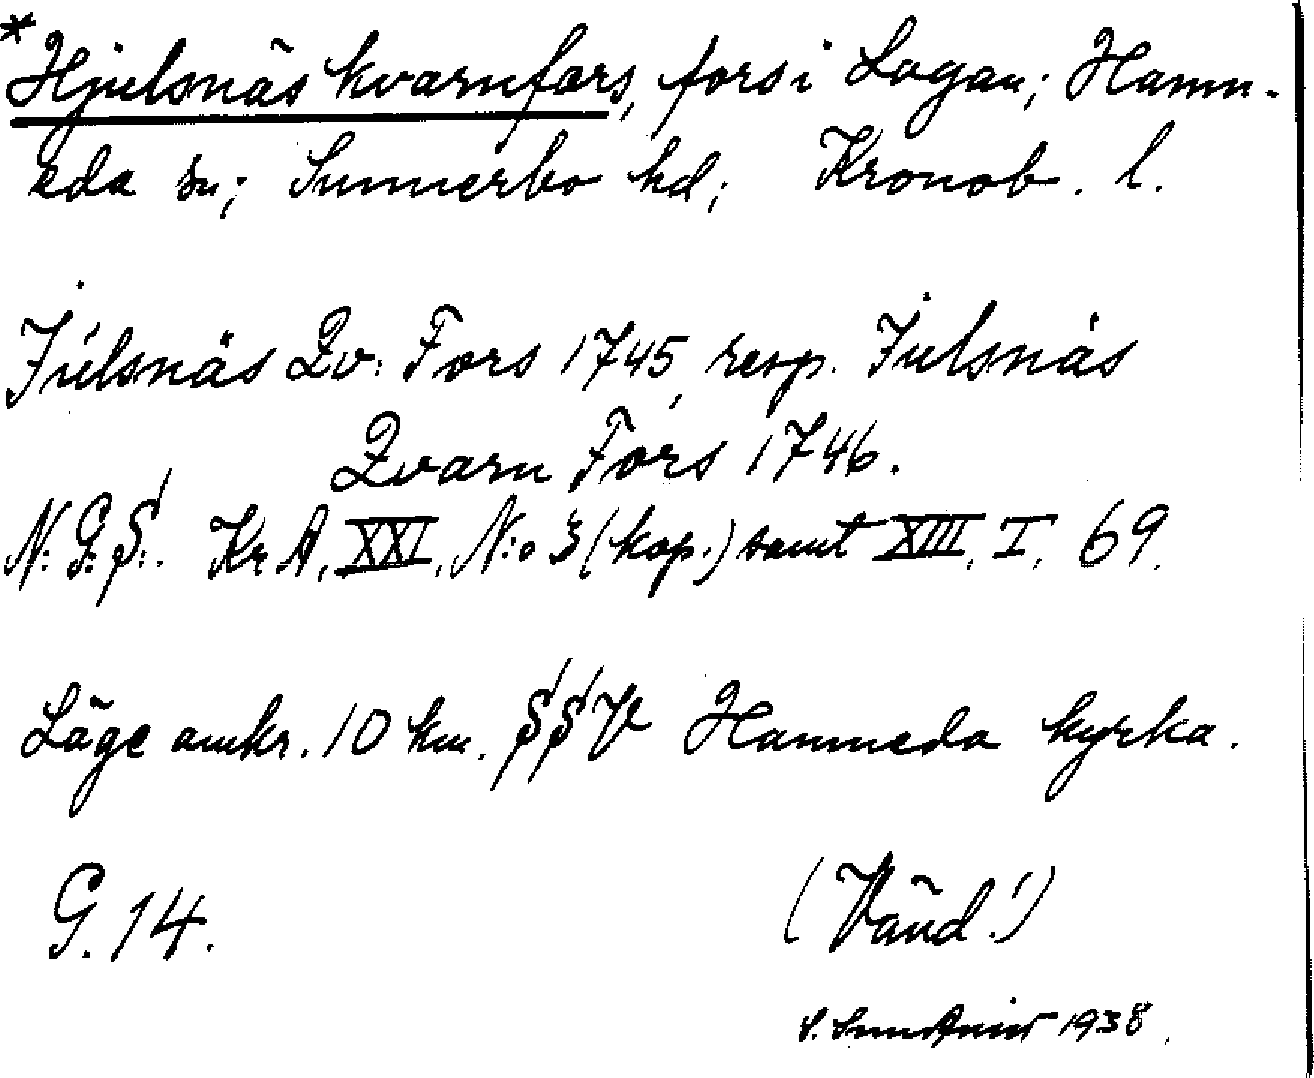 *Hjulsnäs kvarnfors, fors i Lagan; Hamn-
eda sn; Sunnerbo hd; Kronob. l.
Julsnäs Qv: Fors 1745, resp. Julsnäs
Qvarn Fors 1746.
N: G: S:. Kr A, XXI, N:o 3 (kop.) samt XIII, I, 69.
Läge omkr. 10 km. SSV Hamneda kyrka.
G. 14.
(Vänd!)
1938.